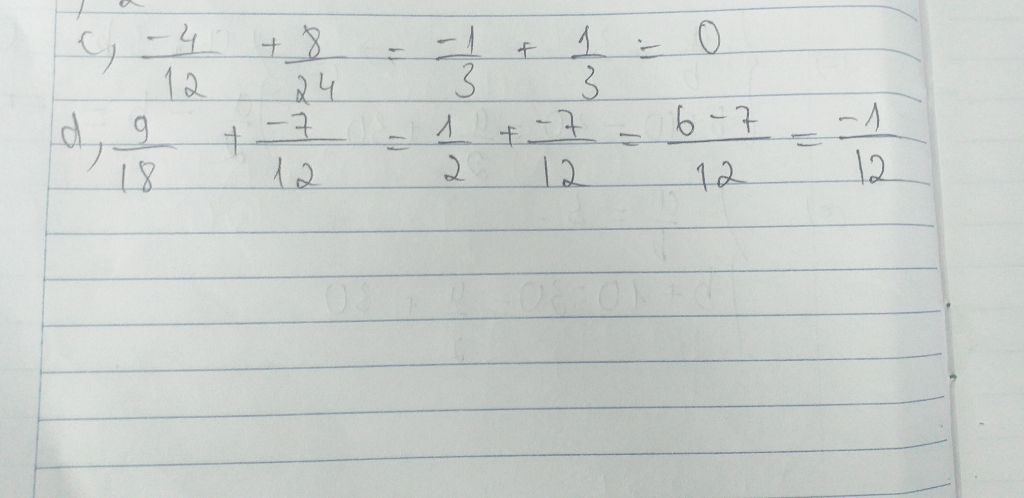 c, -4/12 + 8/24 = -1/3 + 1/3 = 0
d, 9/18 + -7/12 = 1/2 + -7/12 = 6-7/12 = -1/12